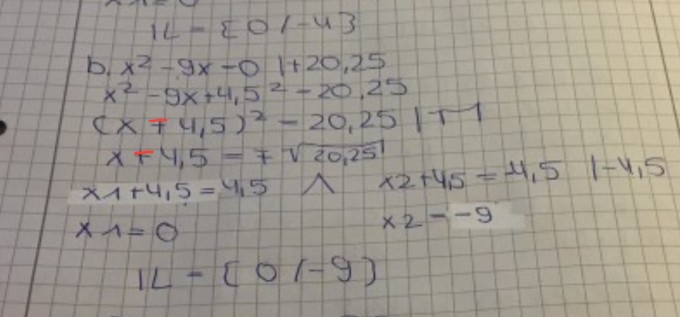 IL = {0/-4}
b. x² - 9x = 0 |+20,25
x² - 9x + 4,5² = 20,25
(x + 4,5)² = 20,25 |√
x + 4,5 = ∓ √20,25
x1 + 4,5 = 4,5 ∧ x2 + 4,5 = -4,5 |-4,5
x1 = 0 x2 = -9
IL = {0/-9}